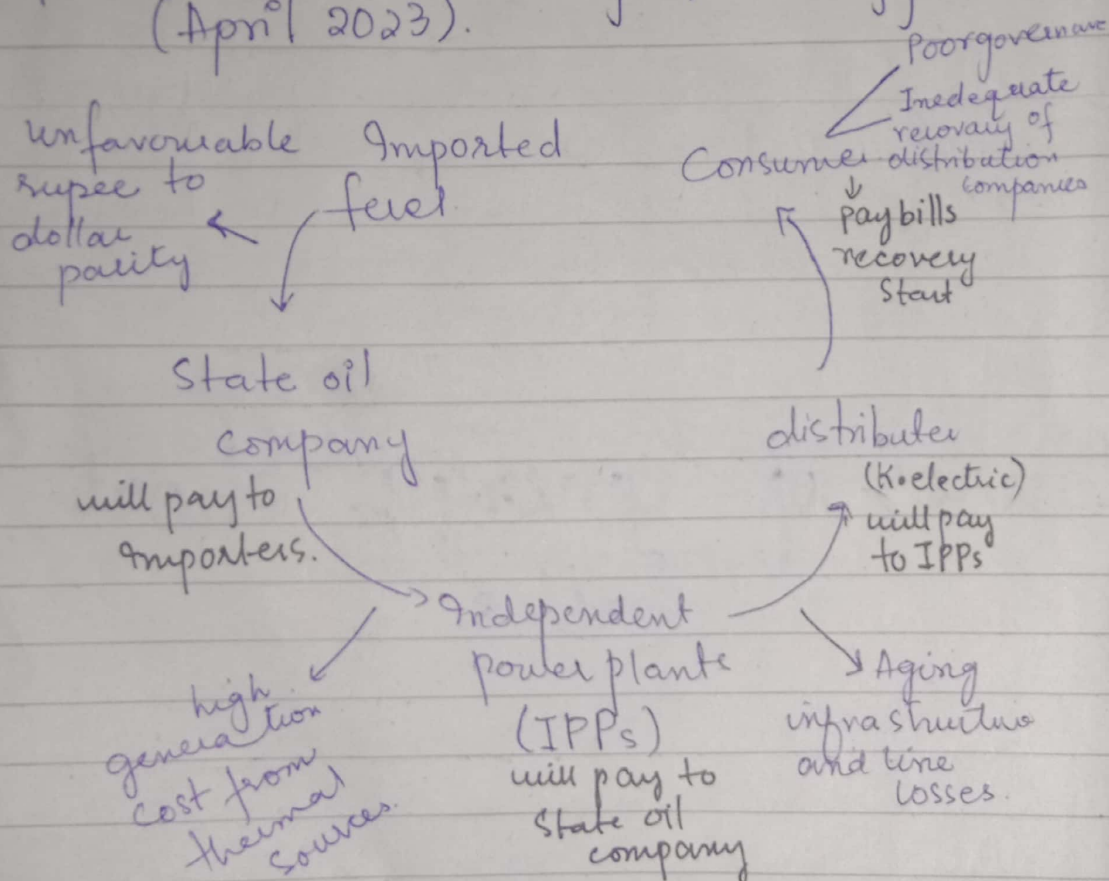 (April 2023).
Poorgovernance
Inedequate
recovary of
distribution
companies
Consumer
pay bills
recovery
Start
unfavourable
rupee to
dollar
parity
Imported
fuel
State oil
company
will pay to
Importers.
distributer
(K.electric)
will pay
to IPPs
Independent
power plants
(IPPs)
will pay to
State oil
company
high
generation
cost from
thermal
sources.
Aging
infrastructure
and line
losses.